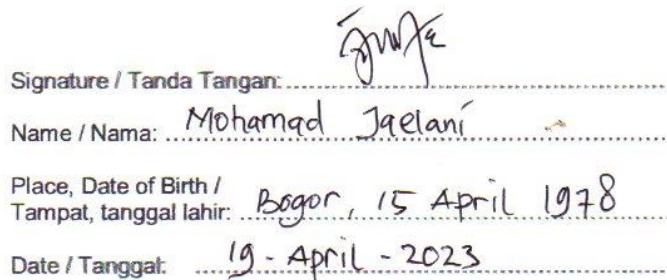 Signature / Tanda Tangan:
Name / Nama: Mohamad Jaelani
Place, Date of Birth /
Tampat, tanggal lahir: Bogor, 15 April 1978
Date / Tanggal: 19 - April - 2023